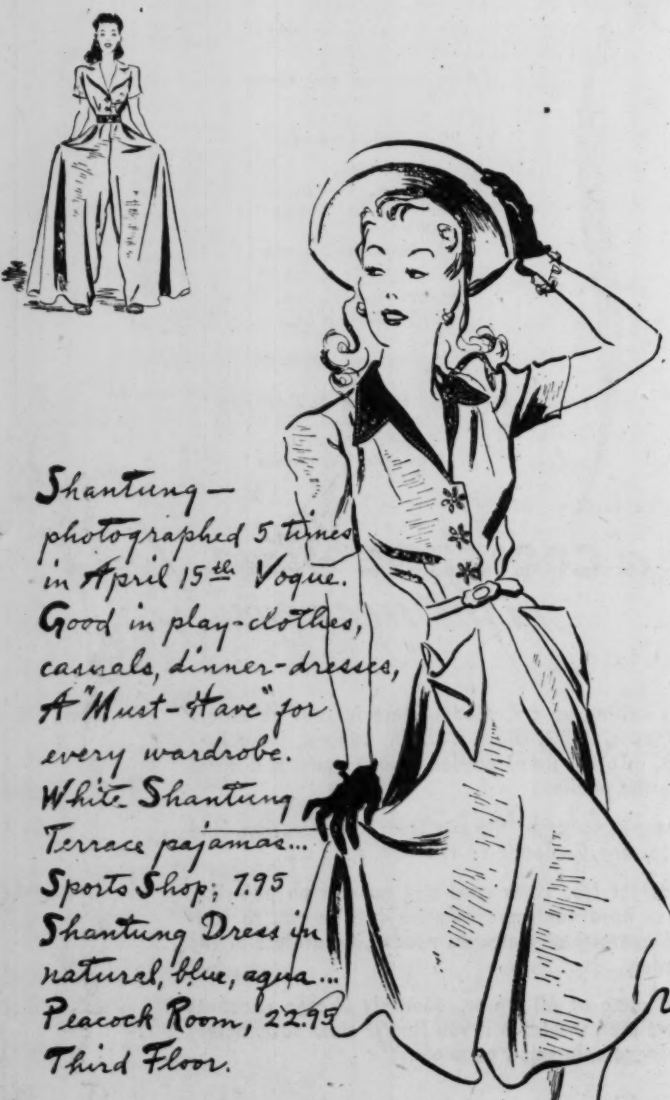 Shantung –
photographed 5 times
in April 15th Vogue.
Good in play-clothes,
casuals, dinner-dresses,
A "Must-Have" for
every wardrobe.
White Shantung
Terrace pajamas...
Sports Shop, 7.95
Shantung Dress in
natural, blue, aqua...
Peacock Room, 22.95
Third Floor.